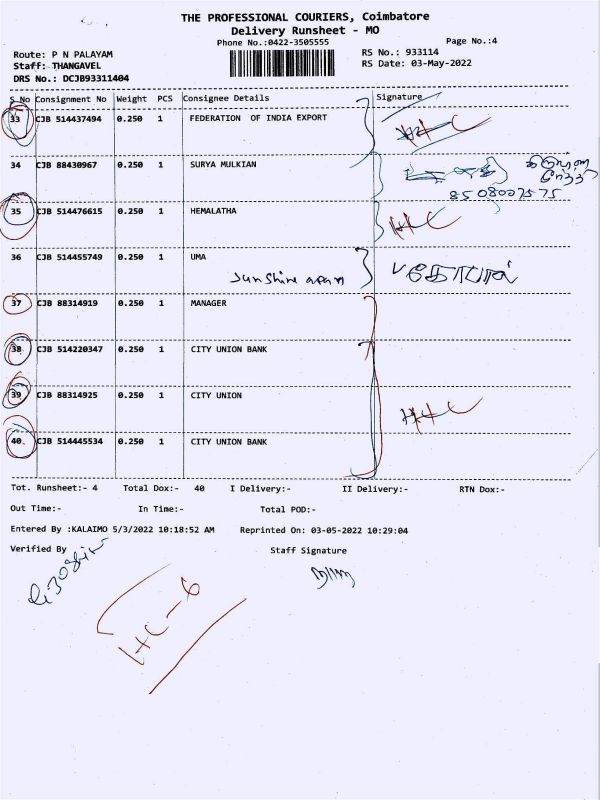 THE PROFESSIONAL COURIERS, Coimbatore
Delivery Runsheet - MO
Phone No.:0422-3505555
Page No.:4
Route: P N PALAYAM
RS No.: 933114
Staff: THANGAVEL
RS Date: 03-May-2022
DRS No.: DCJB93311404
S No Consignment No Weight PCS Consignee Details Signature
33 CJB 514437494 0.250 1 FEDERATION OF INDIA EXPORT
34 CJB 88430967 0.250 1 SURYA MULKIAN
8508007575
35 CJB 514476615 0.250 1 HEMALATHA HC
36 CJB 514455749 0.250 1 UMA
Sunshine apam
37 CJB 88314919 0.250 1 MANAGER
38 CJB 514220347 0.250 1 CITY UNION BANK
39 CJB 88314925 0.250 1 CITY UNION
40 CJB 514445534 0.250 1 CITY UNION BANK
Tot. Runsheet:- 4 Total Dox:- 40 I Delivery:- II Delivery:- RTN Dox:-
Out Time:- In Time:- Total POD:-
Entered By :KALAIMO 5/3/2022 10:18:52 AM Reprinted On: 03-05-2022 10:29:04
Verified By Staff Signature
HC-6